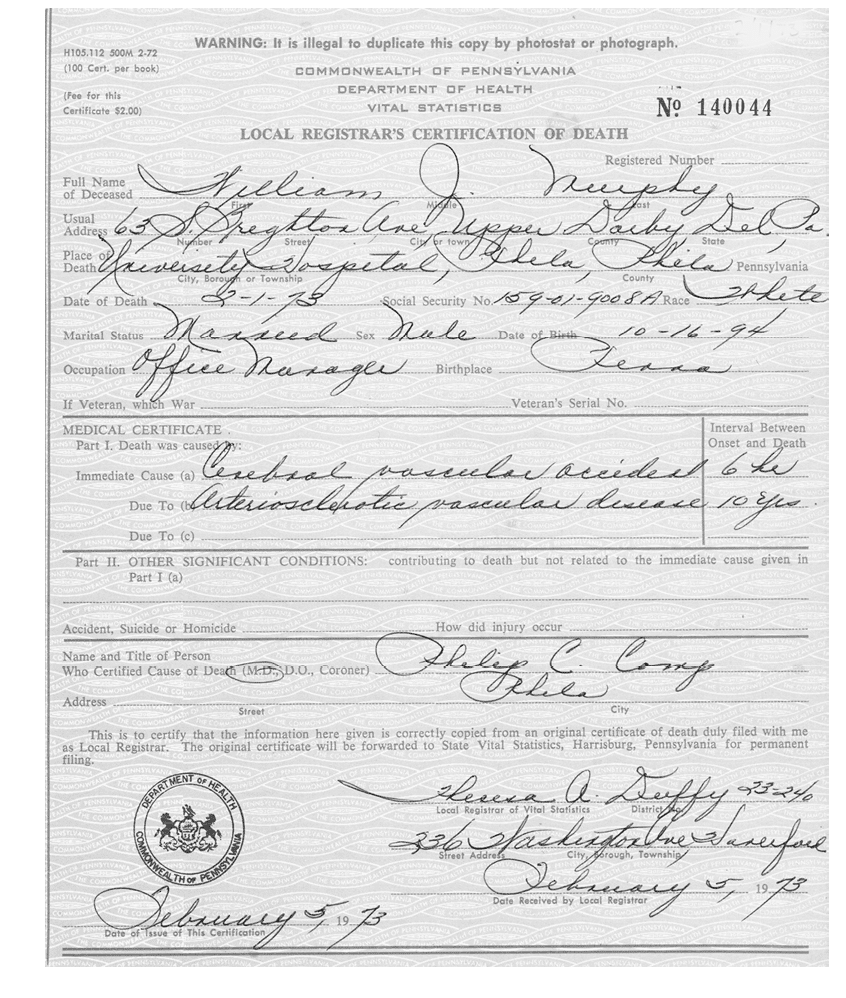 H105.112 500M 2-72
(100 Cert. per book)
(Fee for this
Certificate $2.00)
WARNING: It is illegal to duplicate this copy by photostat or photograph.
COMMONWEALTH OF PENNSYLVANIA
DEPARTMENT OF HEALTH
VITAL STATISTICS
Nº 140044
LOCAL REGISTRAR'S CERTIFICATION OF DEATH
Registered Number
Full Name of Deceased William J. Murphy
First Middle Last
Usual Address 63 S. Ave, Upper Darby Del, Pa.
Number Street City or town County State
Place of Death University Hospital, Phila, Phila Pennsylvania
City, Borough or Township County
Date of Death 2-1-73 Social Security No. 159-01-9008A Race White
Marital Status Married Sex Male Date of Birth 10-16-94
Occupation Office Manager Birthplace Penna
If Veteran, which War Veteran's Serial No.
MEDICAL CERTIFICATE. Interval Between
Part I. Death was caused by: Onset and Death
Immediate Cause (a) Cerebral vascular accident 6 hr
Due To (b) Arteriosclerotic vascular disease 10 yrs.
Due To (c)
Part II. OTHER SIGNIFICANT CONDITIONS: contributing to death but not related to the immediate cause given in
Part I (a)
Accident, Suicide or Homicide How did injury occur
Name and Title of Person
Who Certified Cause of Death (M.D., D.O., Coroner) Philip C. Comp
Address Phila
Street City
This is to certify that the information here given is correctly copied from an original certificate of death duly filed with me
as Local Registrar. The original certificate will be forwarded to State Vital Statistics, Harrisburg, Pennsylvania for permanent
filing.
DEPARTMENT OF HEALTH
COMMONWEALTH OF PENNSYLVANIA
Theresa A. Duffy 23-240
Local Registrar of Vital Statistics District No.
336 Washington Ave Haverford
Street Address City, Borough, Township
February 5, 1973
Date Received by Local Registrar
February 5, 1973
Date of Issue of This Certification